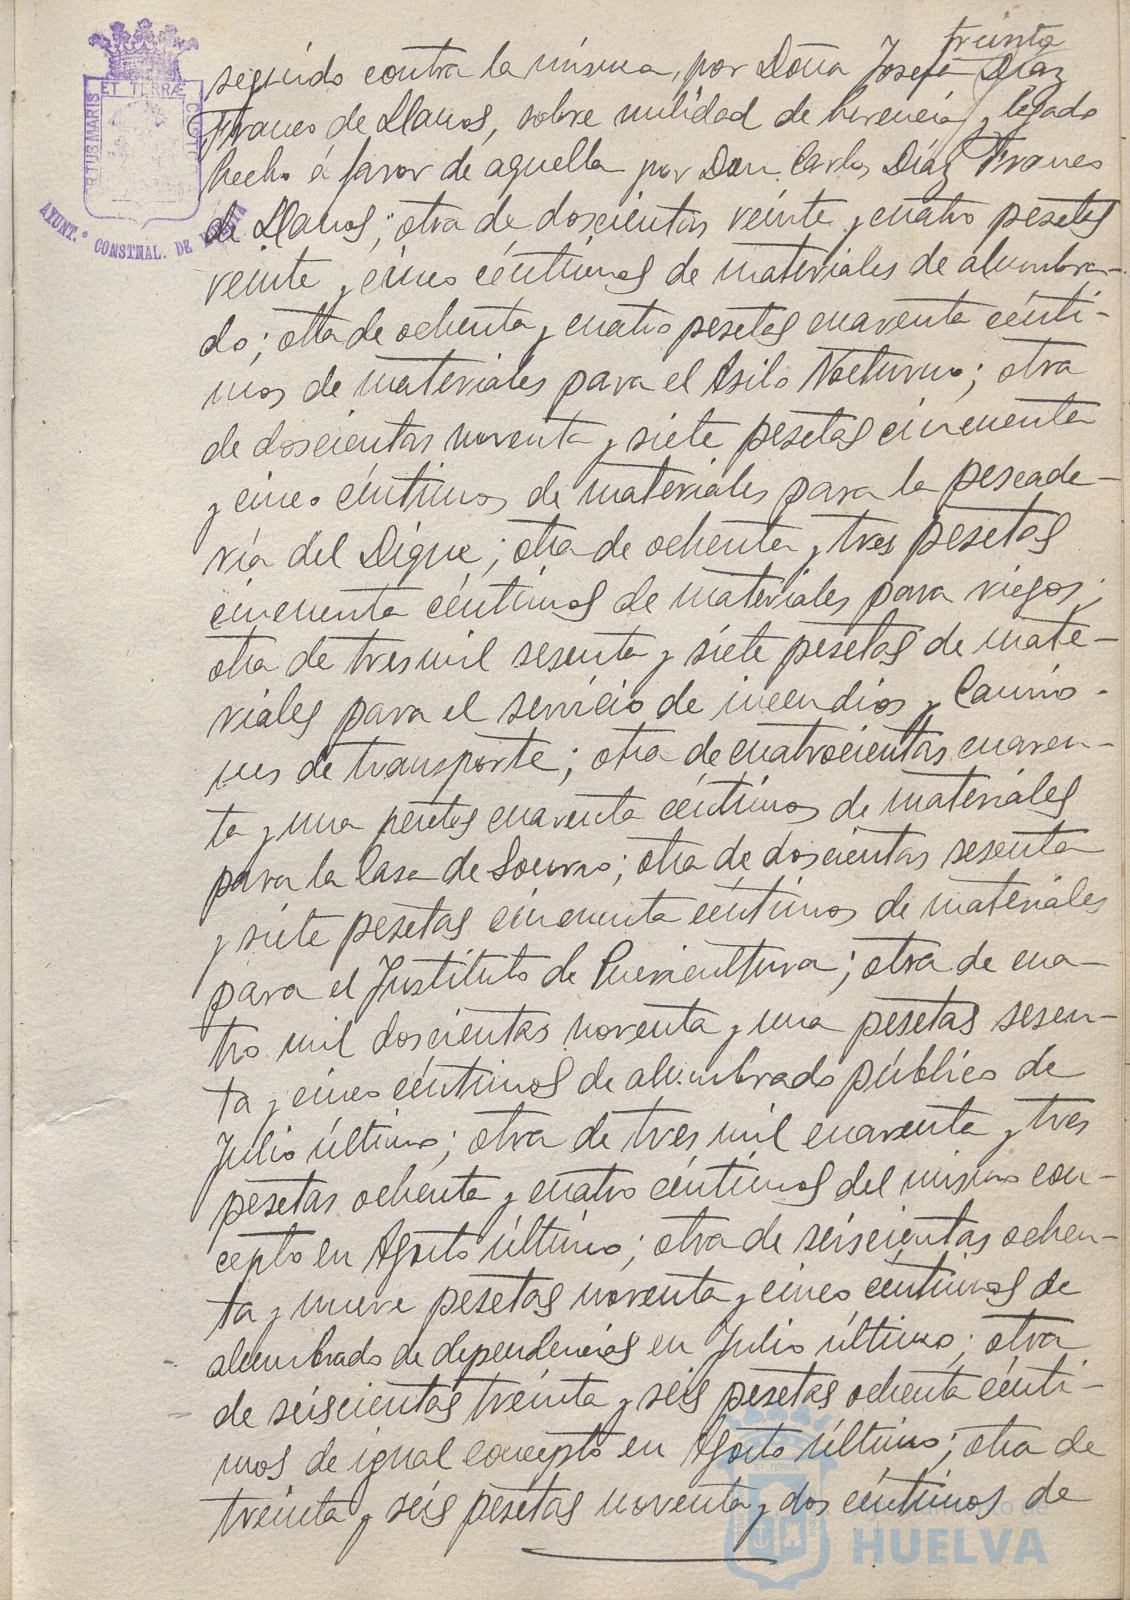 treinta
seguido contra la misma, por Doña Josefa Díaz
Franco de Llanos, sobre nulidad de herencia y legado
hecho á favor de aquella por Don Carlos Díaz Franco
de Llanos; otra de doscientas veinte y cuatro pesetas
veinte y cinco céntimos de materiales de alumbra-
do; otra de ochenta y cuatro pesetas cuarenta cénti-
mos de materiales para el Asilo Nocturno; otra
de doscientas noventa y siete pesetas cincuenta
y cinco céntimos de materiales para la pescade-
ría del Dique; otra de ochenta y tres pesetas
cincuenta céntimos de materiales para riegos;
otra de tres mil sesenta y siete pesetas de mate-
riales para el servicio de incendios y Camio-
nes de transporte; otra de cuatrocientas cuaren-
ta y una pesetas cuarenta céntimos de materiales
para la Casa de Socorro; otra de doscientas sesenta
y siete pesetas cincuenta céntimos de materiales
para el Instituto de Puericultura; otra de cua-
tro mil doscientas noventa y una pesetas sesen-
ta y cinco céntimos de alumbrado público de
Julio último; otra de tres mil cuarenta y tres
pesetas ochenta y cuatro céntimos del mismo con-
cepto en Agosto último; otra de seiscientas ochen-
ta y nueve pesetas noventa y cinco céntimos de
alumbrado de dependencias en Julio último; otra
de seiscientas treinta y seis pesetas ochenta cénti-
mos de igual concepto en Agosto último; otra de
treinta y seis pesetas noventa y dos céntimos de
ET TERRÆ
AYUNT.º CONSTNAL. DE
Ayuntamiento de
HUELVA